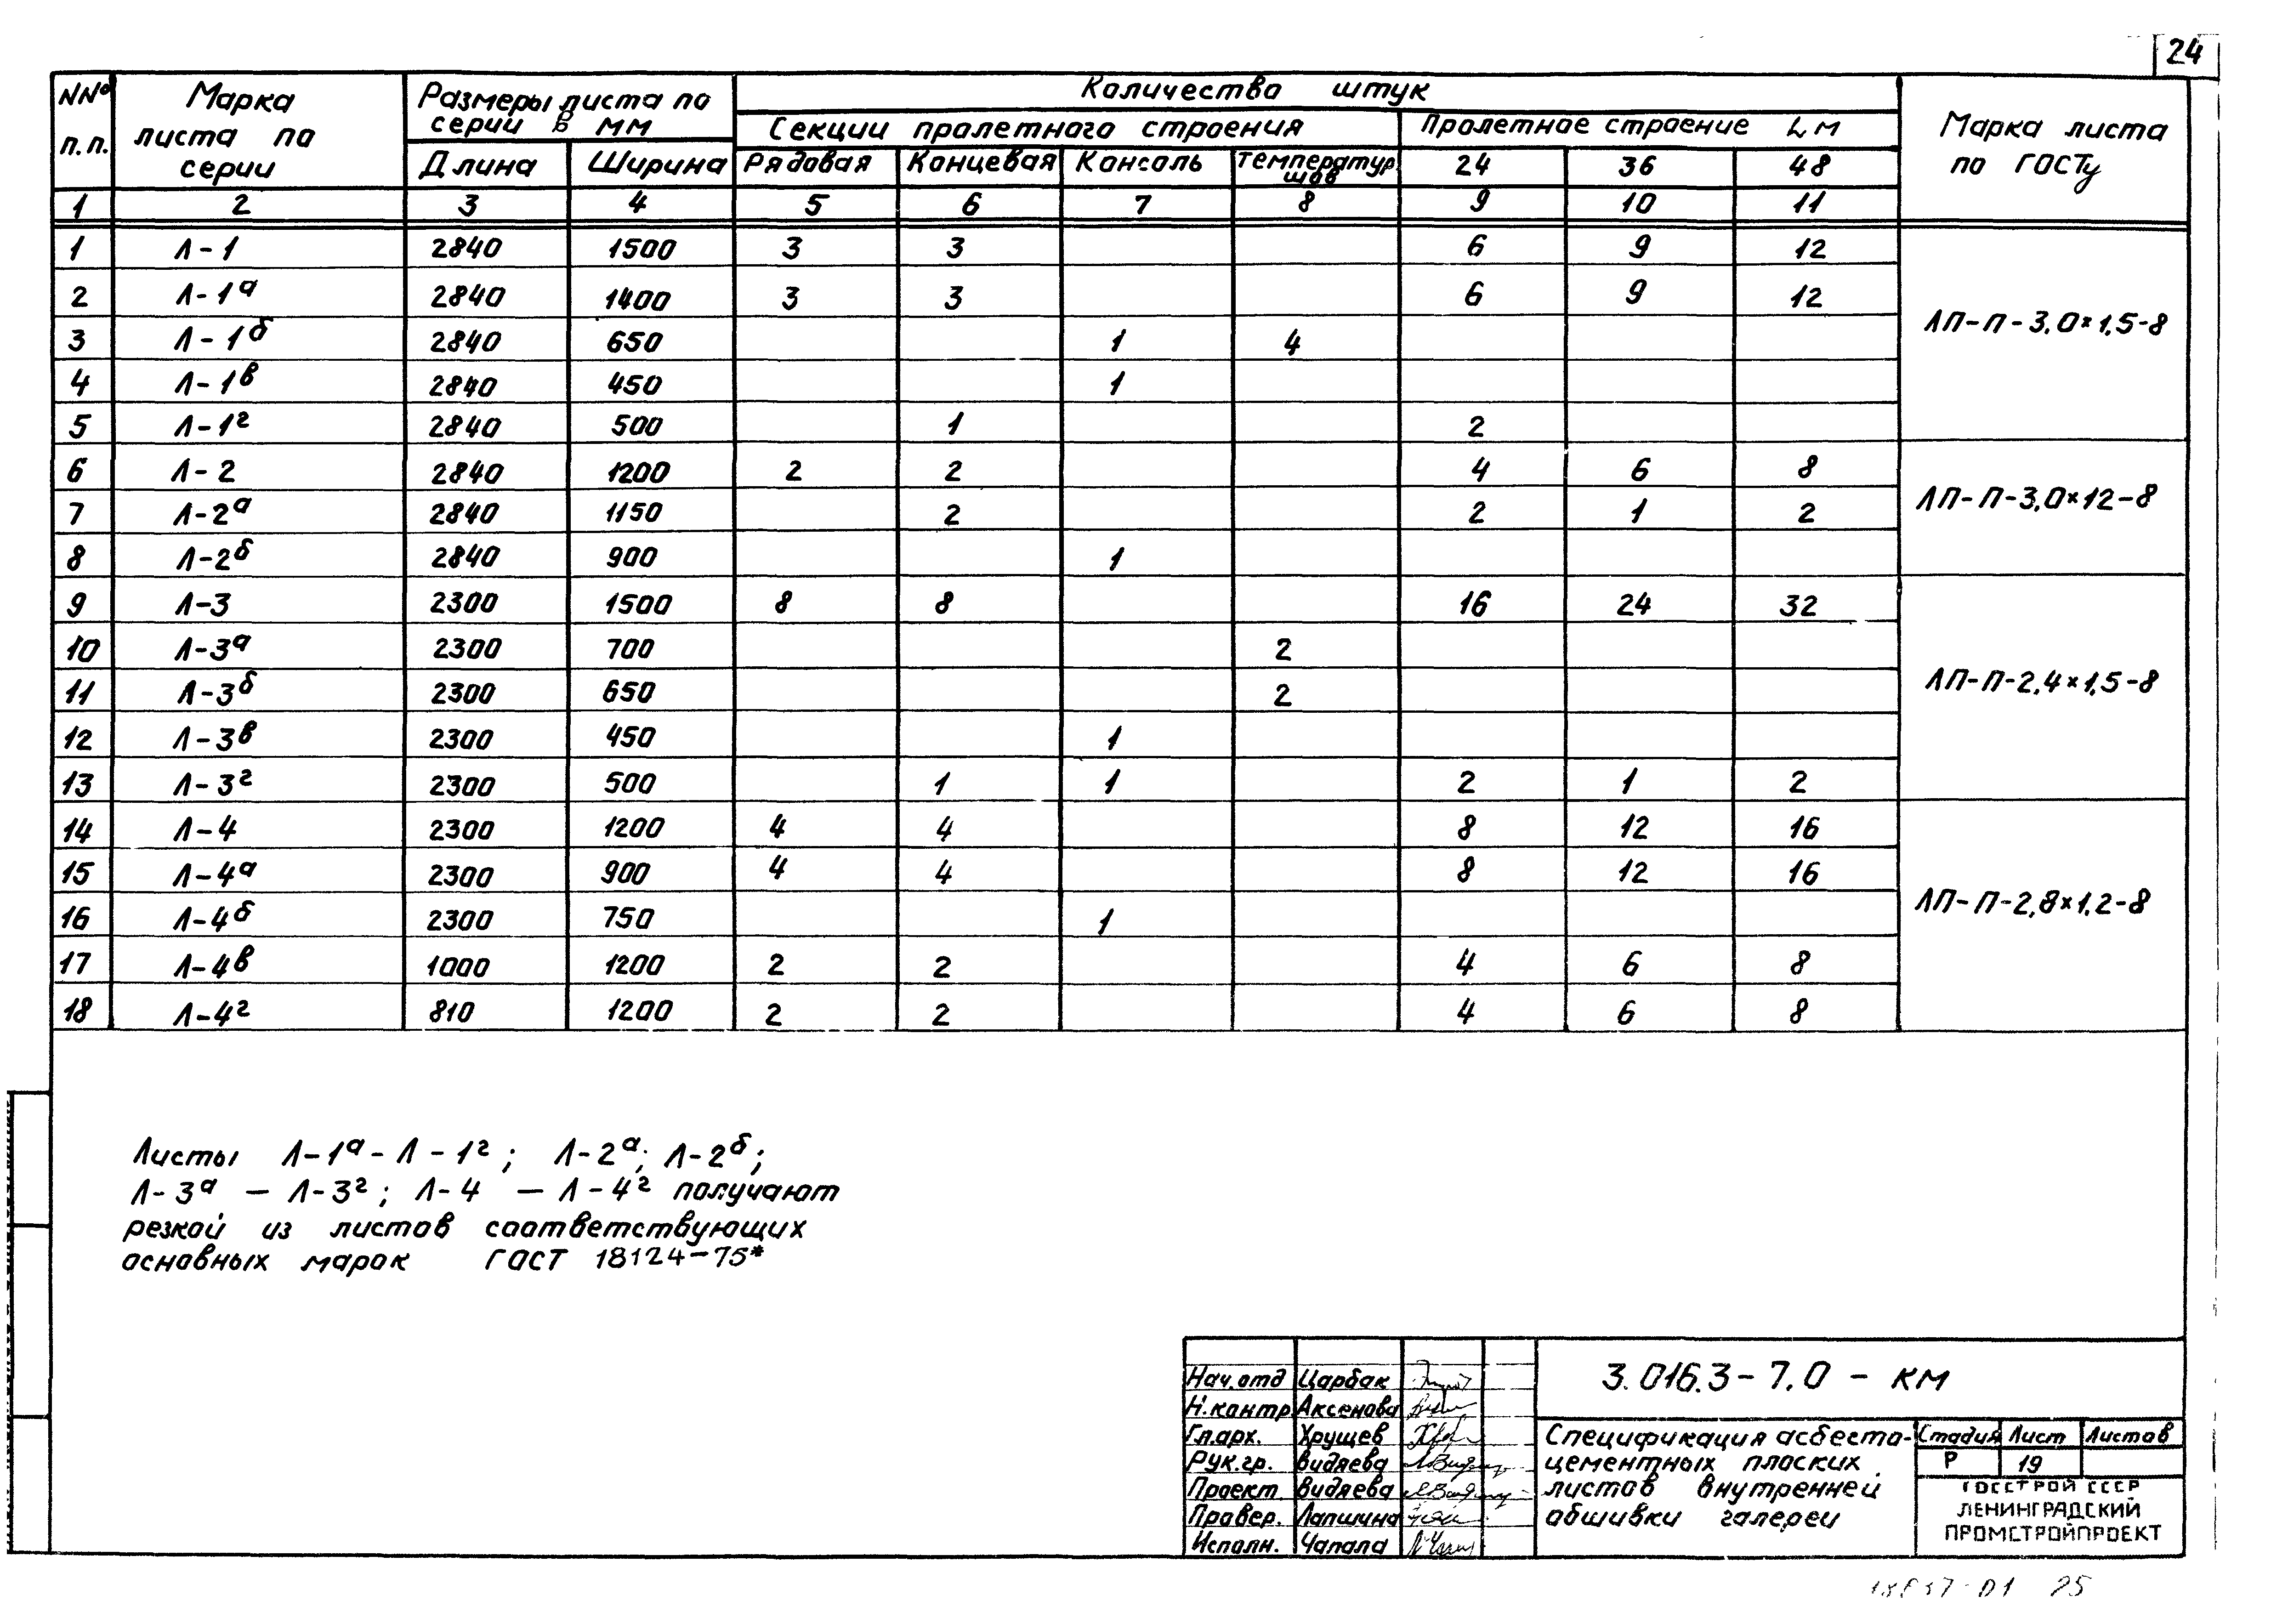 24
NNº п.п. | Марка листа по серии | Размеры листа по серии в мм | Количество штук | Марка листа по ГОСТу
Секции пролетного строения | Пролетное строение L м
Длина | Ширина | Рядовая | Концевая | Консоль | Температур. шов | 24 | 36 | 48
1 | 2 | 3 | 4 | 5 | 6 | 7 | 8 | 9 | 10 | 11
1 | Л-1 | 2840 | 1500 | 3 | 3 | | | 6 | 9 | 12 | ЛП-П-3,0×1,5-8
2 | Л-1а | 2840 | 1400 | 3 | 3 | | | 6 | 9 | 12
3 | Л-1б | 2840 | 650 | | | 1 | 4 | | |
4 | Л-1в | 2840 | 450 | | | 1 | | | |
5 | Л-1г | 2840 | 500 | | 1 | | | 2 | |
6 | Л-2 | 2840 | 1200 | 2 | 2 | | | 4 | 6 | 8 | ЛП-П-3,0×12-8
7 | Л-2а | 2840 | 1150 | | 2 | | | 2 | 1 | 2
8 | Л-2б | 2840 | 900 | | | 1 | | | |
9 | Л-3 | 2300 | 1500 | 8 | 8 | | | 16 | 24 | 32 | ЛП-П-2,4×1,5-8
10 | Л-3а | 2300 | 700 | | | | 2 | | |
11 | Л-3б | 2300 | 650 | | | | 2 | | |
12 | Л-3в | 2300 | 450 | | | 1 | | | |
13 | Л-3г | 2300 | 500 | | 1 | 1 | | 2 | 1 | 2
14 | Л-4 | 2300 | 1200 | 4 | 4 | | | 8 | 12 | 16 | ЛП-П-2,8×1,2-8
15 | Л-4а | 2300 | 900 | 4 | 4 | | | 8 | 12 | 16
16 | Л-4б | 2300 | 750 | | | 1 | | | |
17 | Л-4в | 1000 | 1200 | 2 | 2 | | | 4 | 6 | 8
18 | Л-4г | 810 | 1200 | 2 | 2 | | | 4 | 6 | 8
Листы Л-1а - Л-1г; Л-2а; Л-2б;
Л-3а — Л-3г; Л-4 — Л-4г получают
резкой из листов соответствующих
основных марок ГОСТ 18124-75*
Нач.отд Царбак
Н.контр. Аксенова
Гл.арх. Хрущев
Рук.гр. Видяева
Проект. Видяева
Провер. Лапшина
Исполн. Чапала
3.016.3-7.0 - КМ
Спецификация асбесто-
цементных плоских
листов внутренней
обшивки галереи
Стадия Лист Листов
Р 19
ГОССТРОЙ СССР
ЛЕНИНГРАДСКИЙ
ПРОМСТРОЙПРОЕКТ
25